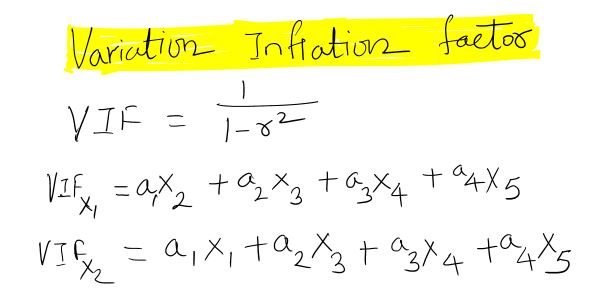 Variation Inflation factor
VIF = 1/1-r²
VIF_X₁ = a₁X₂ + a₂X₃ + a₃X₄ + a₄X₅
VIF_X₂ = a₁X₁ + a₂X₃ + a₃X₄ + a₄X₅